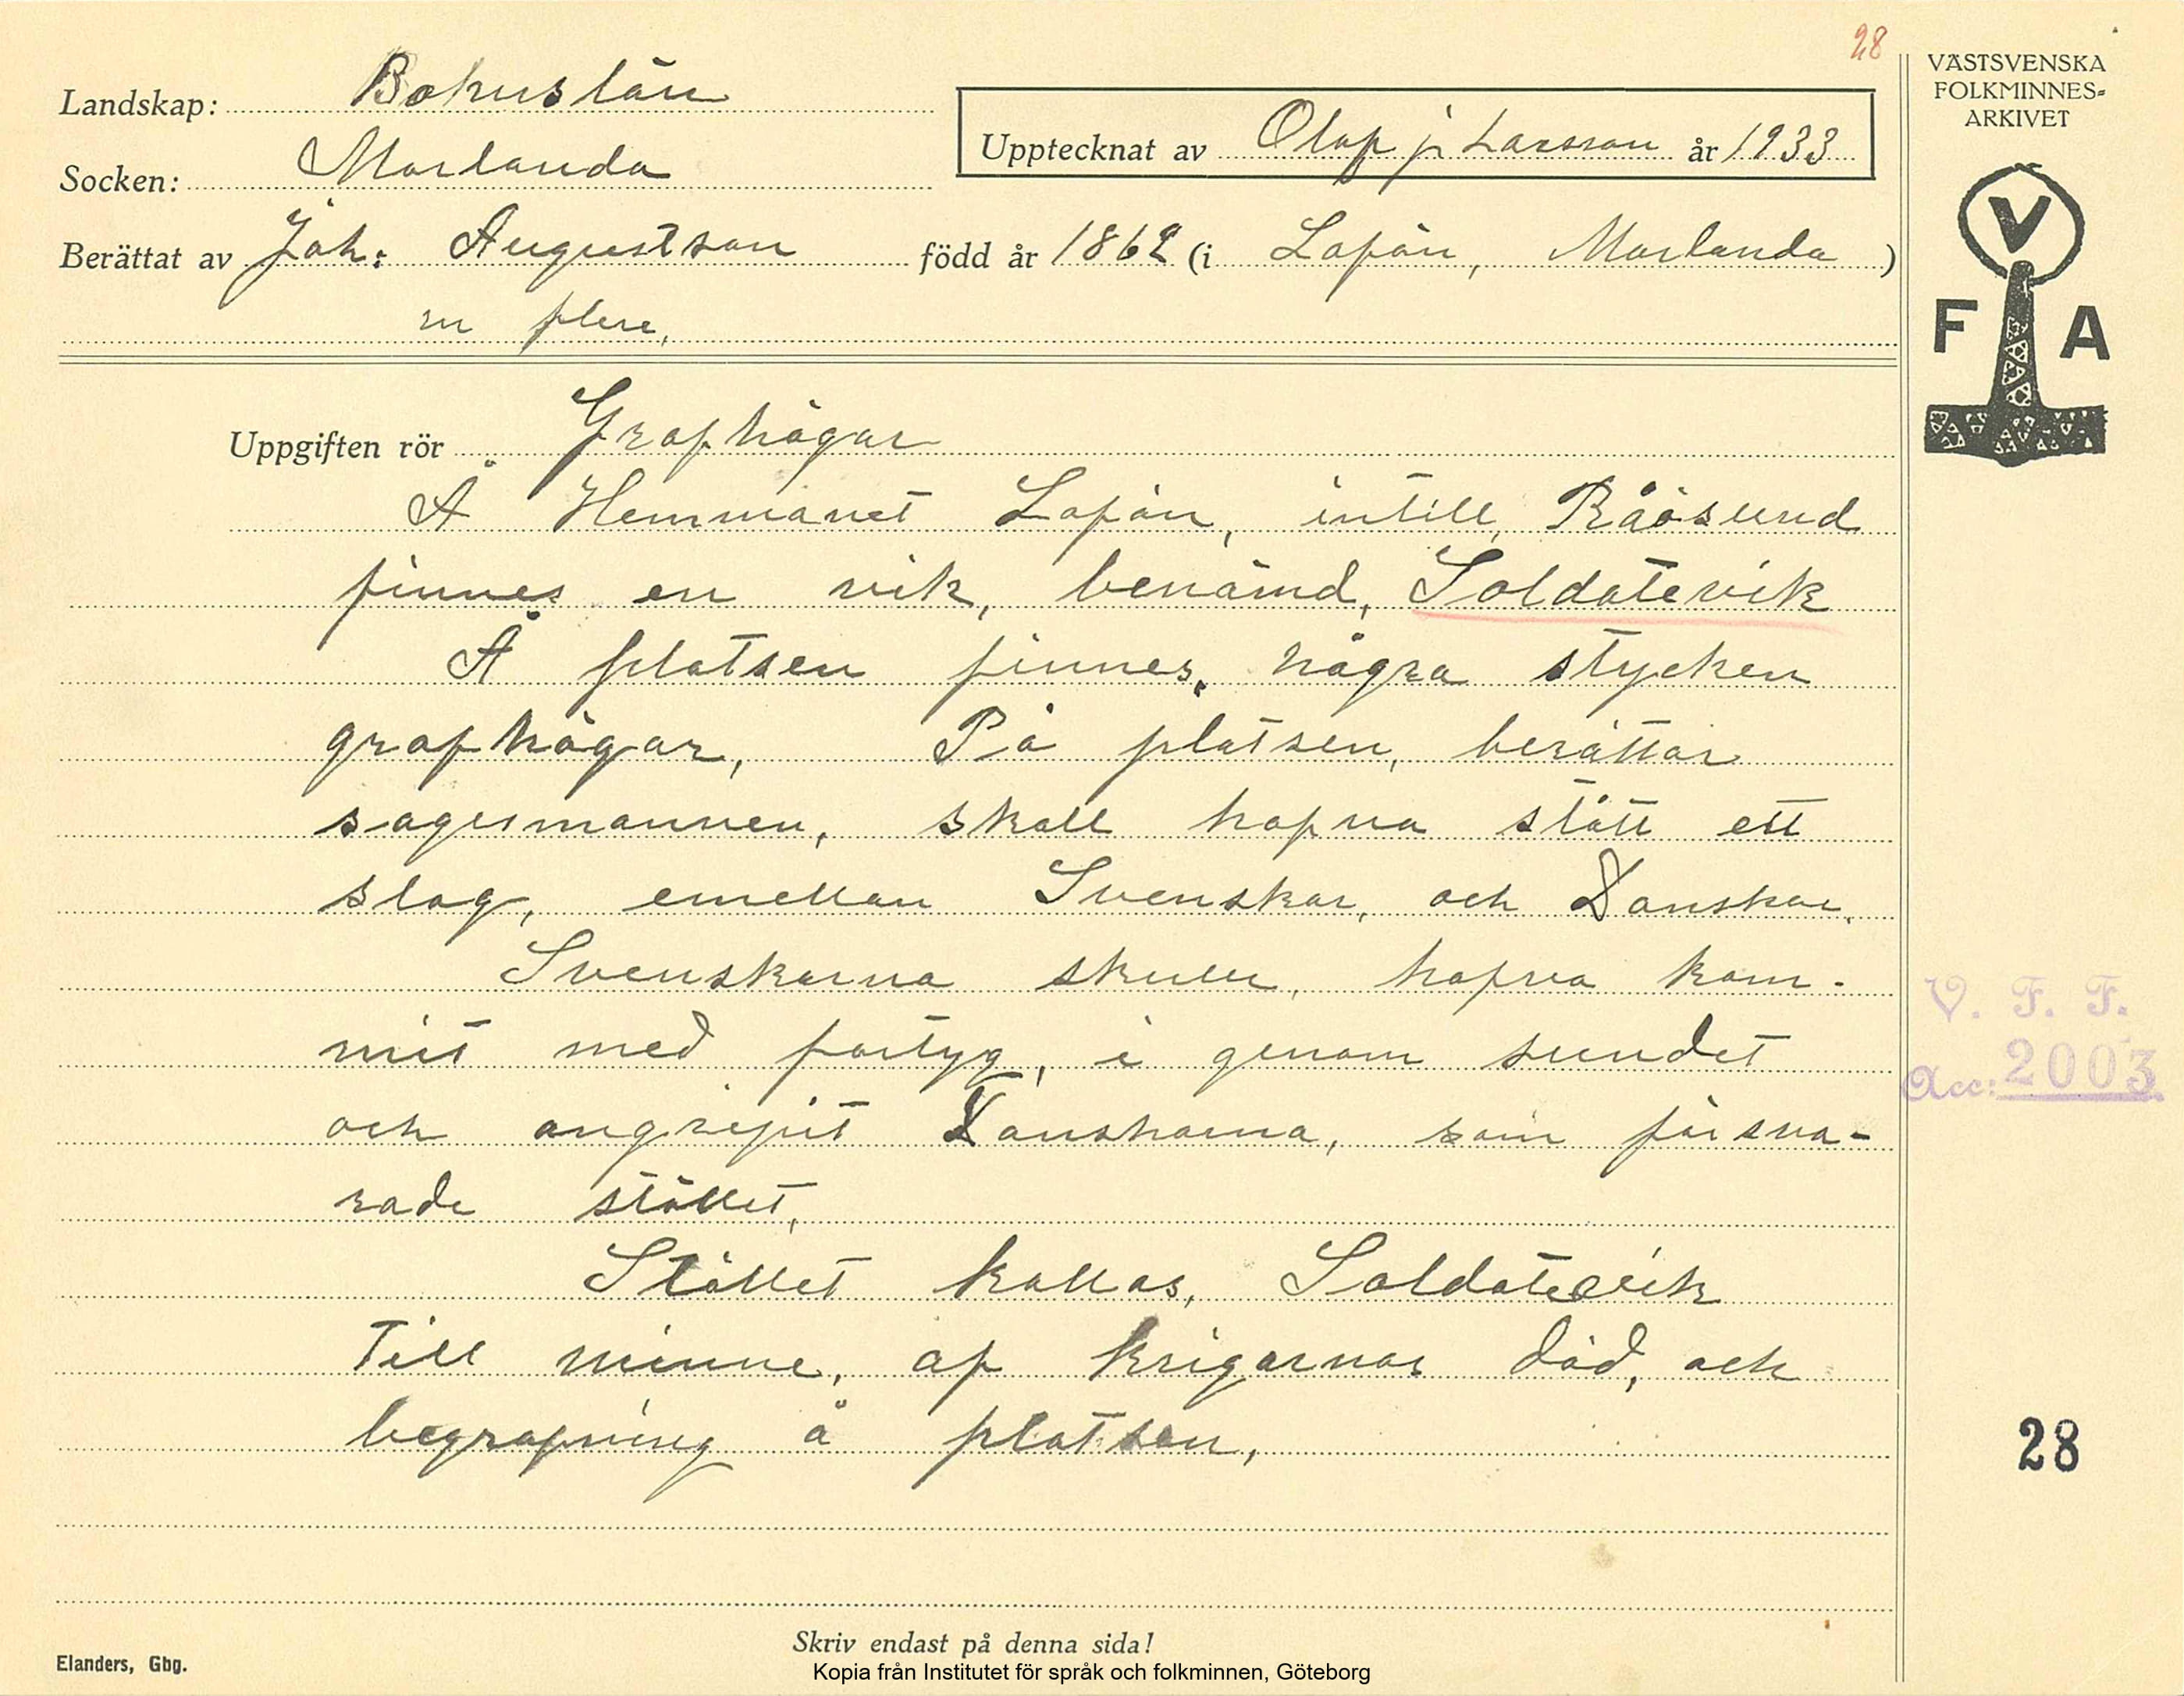 28
VÄSTSVENSKA
FOLKMINNES-
ARKIVET
Landskap: Bohuslän
Upptecknat av Olof j. Larsson år 1933
Socken: Morlanda
Berättat av Joh: Augustson född år 1862 (i Lafön, Morlanda)
m flere,
V
F A
Uppgiften rör Grafhögar
Å Hemmanet Lafön, intill, Råösund
finnes en vik, benämd, Soldatevik
Å platsen finnes, några stycken
grafhögar, På platsen, berättar
sagesmannen, skall hafva stått ett
slag, emellan Svenskar, och Danskar.
Svenskarna skulle, hafva kom-
mit med fartyg, i genom sundet
och angripit Danskarna, som försva-
rade stället,
Stället kallas, Soldatevik
Till minne, af krigarnas död, och
begrafning å platsen,
V. F. F.
Acc: 2003
28
Skriv endast på denna sida!
Elanders, Gbg.
Kopia från Institutet för språk och folkminnen, Göteborg